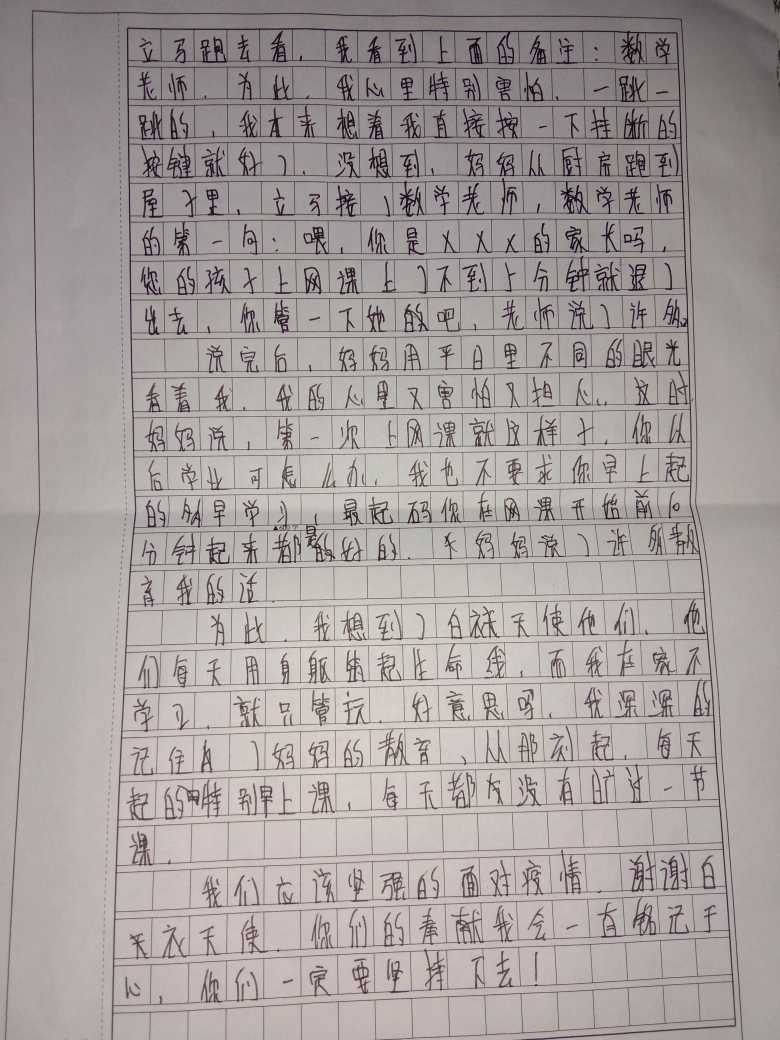 立马跑去看，我看到上面的备注：数学
老师，为此，我心里特别害怕，一跳一
跳的，我本来想着我直接按一下挂断的
按键就好了，没想到，妈妈从厨房跑到
屋子里，立马接了数学老师，数学老师
的第一句：喂，你是XXX的家长吗，
您的孩子上网课上了不到5分钟就退了
出去，你管一下她的吧，老师说了许多。
说完后，妈妈用平日里不同的眼光
看着我，我的心里又害怕又担心，这时
妈妈说，第一次上网课就这样子，你以
后学业可怎么办，我也不要求你早上起
的多早学习，最起码你在网课开始前10
分钟起来都是好的，妈妈说了许多教
育我的话
为此，我想到了白衣天使他们，他
们每天用身躯筑起生命线，而我在家不
学习，就只管玩，好意思吗，我深深的
记住了妈妈的教育，从那刻起，每天
起的特别早上课，每天都没有旷过一节
课，
我们应该坚强的面对疫情，谢谢白
衣天使，你们的奉献我会一直铭记于
心，你们一定要坚持下去！